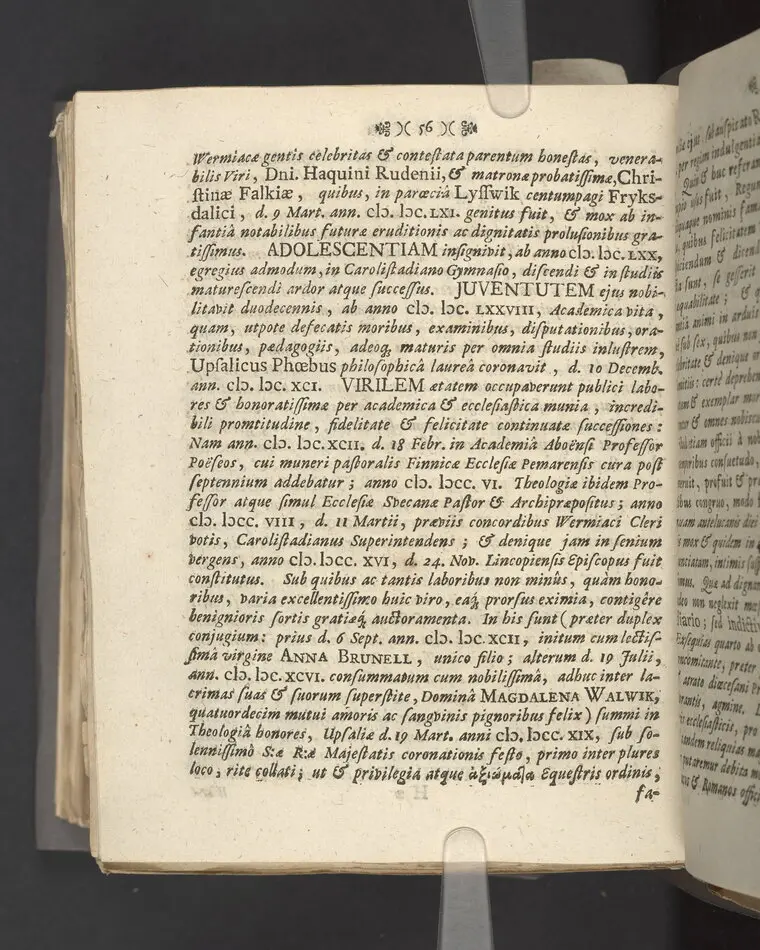 )( 56 )(
Wermiacæ gentis celebritas & contestata parentum honestas, venera-
bilis Viri, Dni. Haquini Rudenii, & matronæ probatissimæ, Chri-
stinæ Falkiæ, quibus, in parœciâ Lysswik centumpagi Fryks-
dalici, d. 9 Mart. ann. cIɔ. Iɔc. LXI. genitus fuit, & mox ab in-
fantiâ notabilibus futuræ eruditionis ac dignitatis prolusionibus gra-
tissimus. ADOLESCENTIAM insignivit, ab anno cIɔ. Iɔc. LXX,
egregius admodum, in Carolistadiano Gymnasio, discendi & in studiis
maturescendi ardor atque successus. JUVENTUTEM ejus nobi-
litavit duodecennis, ab anno cIɔ. Iɔc. LXXVIII, Academica vita,
quam, utpote defecatis moribus, examinibus, disputationibus, ora-
tionibus, pædagogiis, adeoq; maturis per omnia studiis inlustrem,
Upsalicus Phœbus philosophicâ laureâ coronavit, d. 10 Decemb.
ann. cIɔ. Iɔc. XCI. VIRILEM ætatem occupaverunt publici labo-
res & honoratissimæ per academica & ecclesiastica munia, incredi-
bili promtitudine, fidelitate & felicitate continuatæ successiones:
Nam ann. cIɔ. Iɔc. XCII. d. 18 Febr. in Academiâ Aboënsi Professor
Poëseos, cui muneri pastoralis Finnicæ Ecclesiæ Pemarensis cura post
septennium addebatur; anno cIɔ. Iɔcc. VI. Theologiæ ibidem Pro-
fessor atque simul Ecclesiæ Svecanæ Pastor & Archipræpositus; anno
cIɔ. Iɔcc. VIII, d. 11 Martii, præviis concordibus Wermiaci Cleri
votis, Carolistadianus Superintendens; & denique jam in senium
vergens, anno cIɔ. Iɔcc. XVI, d. 24. Nov. Lincopiensis Episcopus fuit
constitutus. Sub quibus ac tantis laboribus non minùs, quàm hono-
ribus, varia excellentissimo huic viro, eaq; prorsus eximia, contigêre
benignioris sortis gratiæq; auctoramenta. In his sunt (præter duplex
conjugium: prius d. 6 Sept. ann. cIɔ. Iɔc. XCII, initum cum lectis-
simâ virgine ANNA BRUNELL, unico filio; alterum d. 19 Julii,
ann. cIɔ. Iɔc. XCVI. consummatum cum nobilissimâ, adhuc inter la-
crimas suas & suorum superstite, Dominâ MAGDALENA WALWIK,
quatuordecim mutui amoris ac sangvinis pignoribus felix) summi in
Theologiâ honores, Upsaliæ d. 19 Mart. anni cIɔ. Iɔcc. XIX, sub so-
lennissimo S:æ R:æ Majestatis coronationis festo, primo inter plures
loco, rite collati; ut & privilegia atque ἀξιώματα Equestris ordinis,
fa-